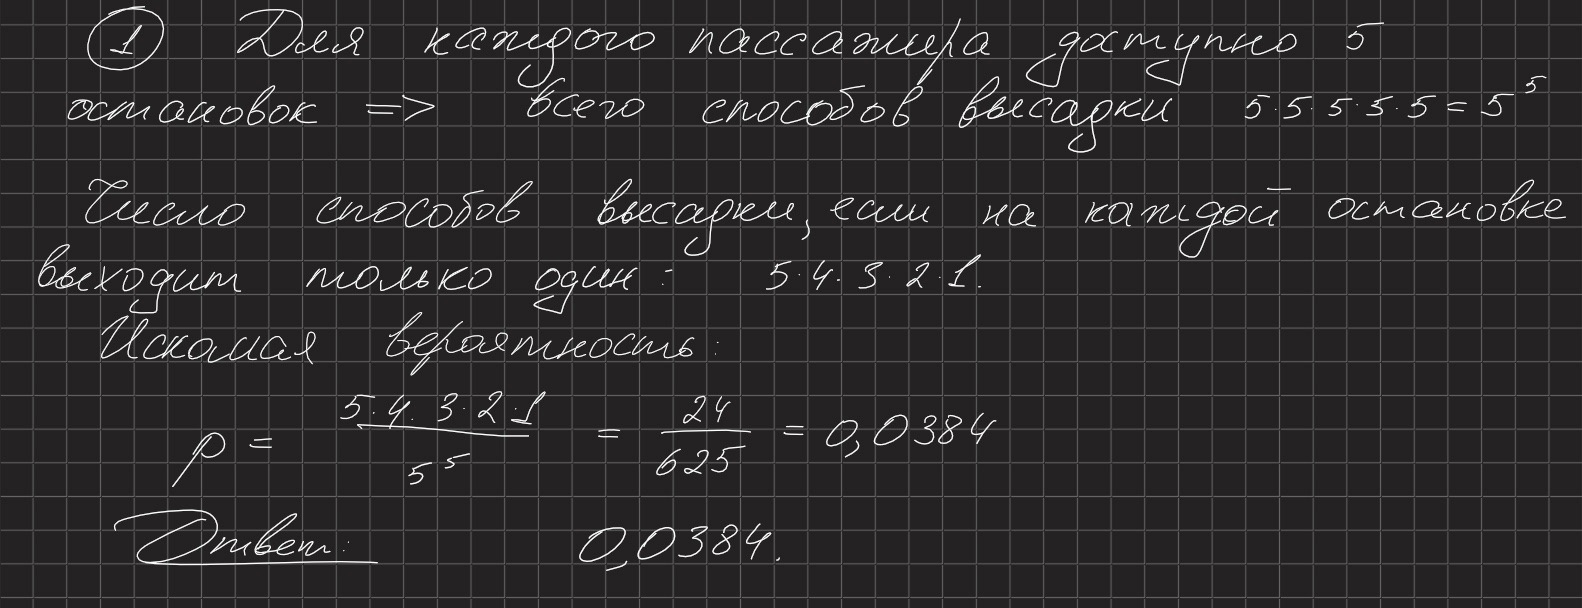 ① Для каждого пассажира доступно 5
остановок => всего способов высадки 5·5·5·5·5 = 5⁵
Число способов высадки, если на каждой остановке
выходит только один: 5·4·3·2·1.
Искомая вероятность:
p = (5·4·3·2·1)/5⁵ = 24/625 = 0,0384
Ответ: 0,0384.